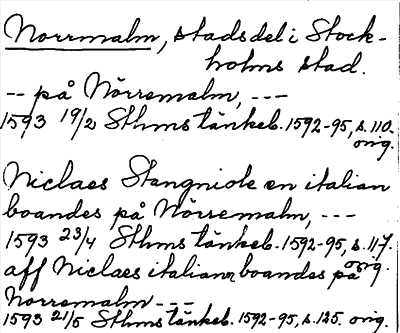 Norrmalm, stadsdel i Stock-
holms stad.
-- på Nörremalm, ---
1593 19/2 Sthms tänkeb. 1592-95, s. 110.
orig.
Niclaes Stangniole en italian
boandes på Nörremalm, ---
1593 23/4 Sthms tänkeb. 1592-95, s. 117.
orig.
aff Niclaes italian boandes på
Norremalm ---
1593 21/5 Sthms tänkeb. 1592-95, s. 125. orig.